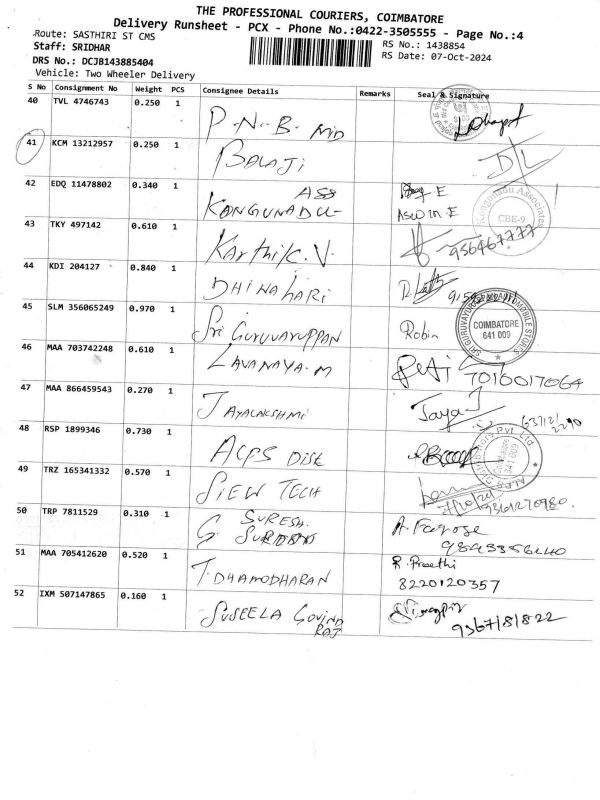 THE PROFESSIONAL COURIERS, COIMBATORE
Delivery Runsheet - PCX - Phone No.:0422-3505555 - Page No.:4
Route: SASTHIRI ST CMS
RS No.: 1438854
Staff: SRIDHAR
RS Date: 07-Oct-2024
DRS No.: DCJB143885404
Vehicle: Two Wheeler Delivery
S No Consignment No Weight PCS Consignee Details Remarks Seal & Signature
40 TVL 4746743 0.250 1 P.N.B. MID
41 KCM 13212957 0.250 1 BALAJI
42 EDQ 11478802 0.340 1 KONGUNADU ASS
ASWIN.E
Kongunadu Associates
CBE-9
43 TKY 497142 0.610 1 Karthi C.V.
44 KDI 204127 0.840 1 DHINAHARI
45 SLM 356065249 0.970 1 Sri GURUVARUPPAN Robin
COIMBATORE
641 009
46 MAA 703742248 0.610 1 LAVANAYA.M 7010017064
47 MAA 866459543 0.270 1 JAYALAKSHMI Jaya
48 RSP 1899346 0.730 1 ACPS DISE
49 TRZ 165341332 0.570 1 SIEW TECH
50 TRP 7811529 0.310 1 G SURESH.
51 MAA 705412620 0.520 1 T.DHAMODHARAN R.Preethi
8220120357
52 IXM 507147865 0.160 1 SUSEELA GOVIND
RAJ
9367181822